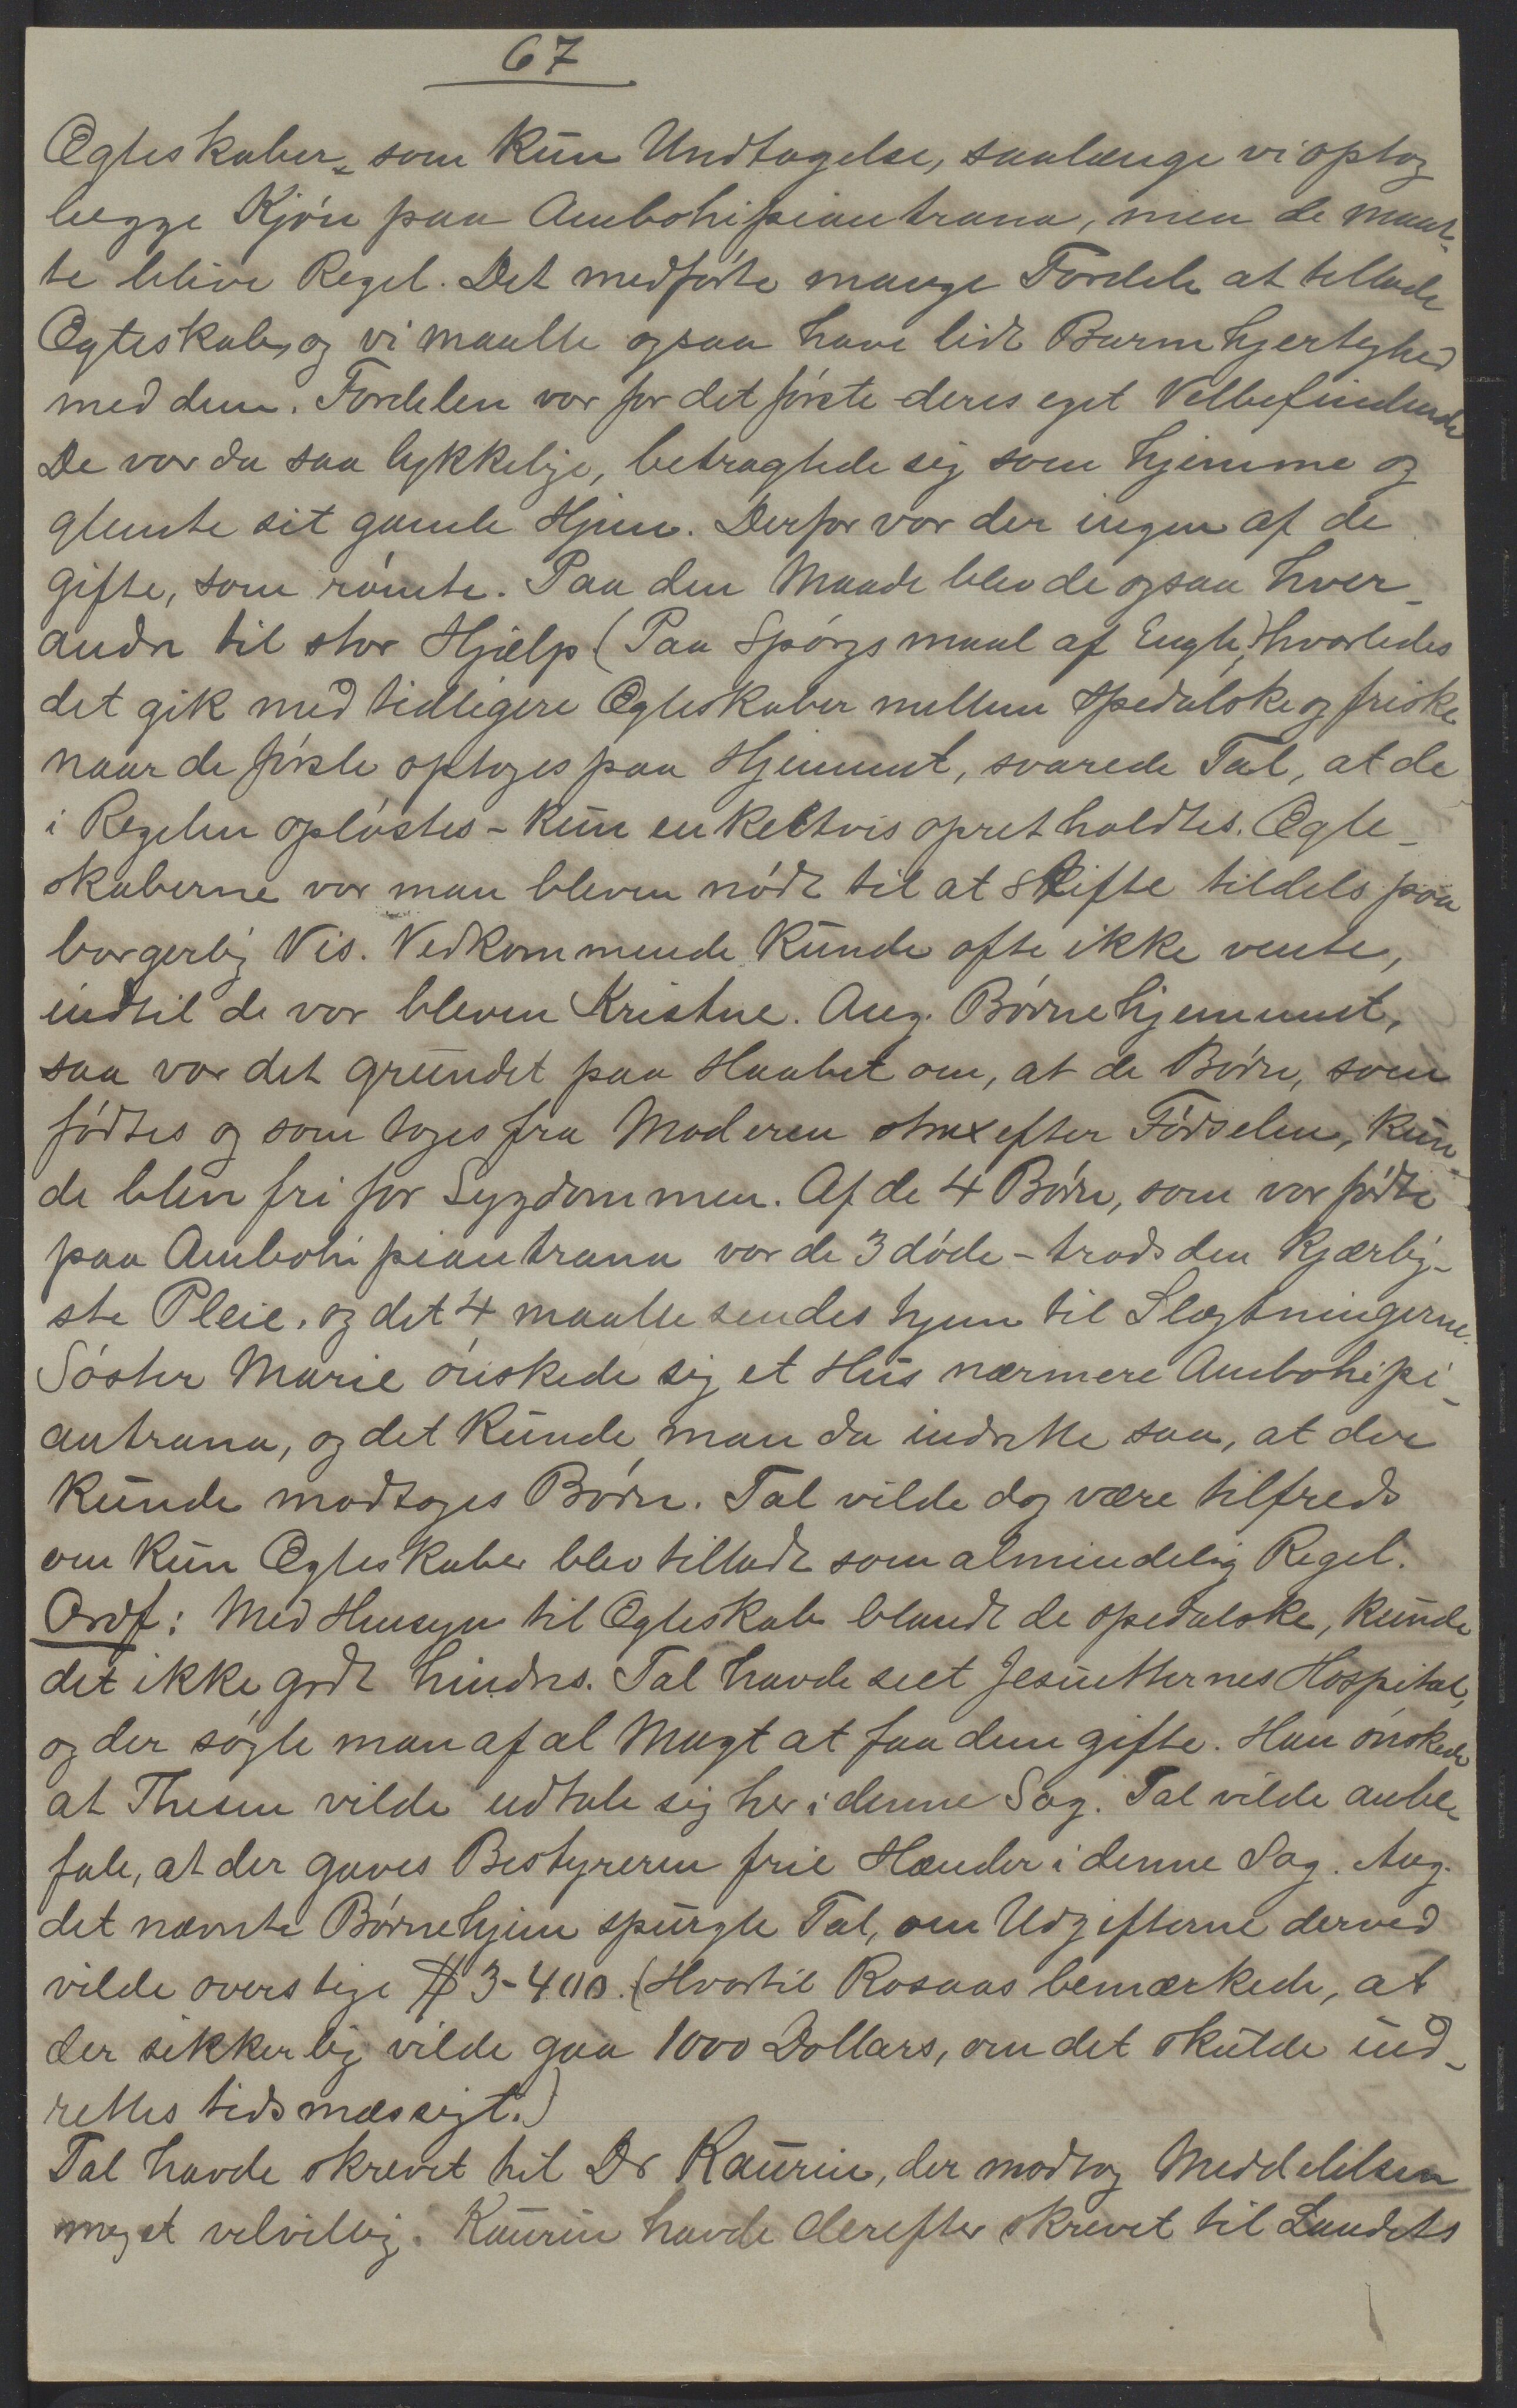 67
Ægteskaber som kun Undtagelse, saalænge vi optog
begge Kjøn paa Ambohipiantrana, men de maat-
te blive Regel. Det medførte mange Fordele at tillade
Ægteskab, og vi maatte ogsaa have lidt Barmhjertighed
med dem. Fordelen var for det første deres eget Velbefindende
De var da saa lykkelige, betragtede sig som hjemme og
glemte sit gamle Hjem. Derfor var der ingen af de
gifte, som rømte. Paa den Maade blev de ogsaa hver-
andre til stor Hjælp (Paa Spørgsmaal af Engh, hvorledes
det gik med tidligere Ægteskaber mellem spedalske og friske
naar de første optoges paa Hjemmet, svarede Tal, at de
i Regelen opløstes - kun enkeltvis opretholdtes. Ægte-
skaberne var man bleven nødt til at stifte tildels paa
borgerlig Vis. Vedkommende kunde ofte ikke vente,
indtil de var bleven Kristne. Ang. Børnehjemmet,
saa var det grundet paa Haabet om, at de Børn, som
fødtes og som toges fra Moderen strax efter Fødselen, kun-
de blive fri for Sygdommen. Af de 4 Børn, som var fødte
paa Ambohipiantrana var de 3 døde - trods den kjærlig-
ste Pleie, og det 4 maatte sendes hjem til Slægtningerne.
Søster Marie ønskede sig et Hus nærmere Ambohipi-
antrana, og det kunde man da indrette saa, at der
kunde modtoges Børn. Tal vilde dog være tilfreds
om kun Ægteskaber blev tilladt som almindelig Regel.
Ordf: Med Hensyn til Ægteskab blandt de spedalske, kunde
det ikke godt hindres. Tal havde seet Jesuitternes Hospital,
og der søgte man af al Magt at faa dem gifte. Han ønskede
at Thesen vilde udtale sig her i denne Sag. Tal vilde anbe-
fale, at der gaves Bestyreren frie Hænder i denne Sag. Ang.
det nævnte Børnehjem spurgte Tal, om Udgifterne derved
vilde overstige $ 3-400. (Hvortil Rosaas bemærkede, at
der sikkerlig vilde gaa 1000 Dollars, om det skulde ind-
rettes tidsmæssigt.)
Tal havde skrevet til Dr Kaurin, der modtog Meddelelsen
meget velvillig. Kaurin havde derefter skrevet til Landets